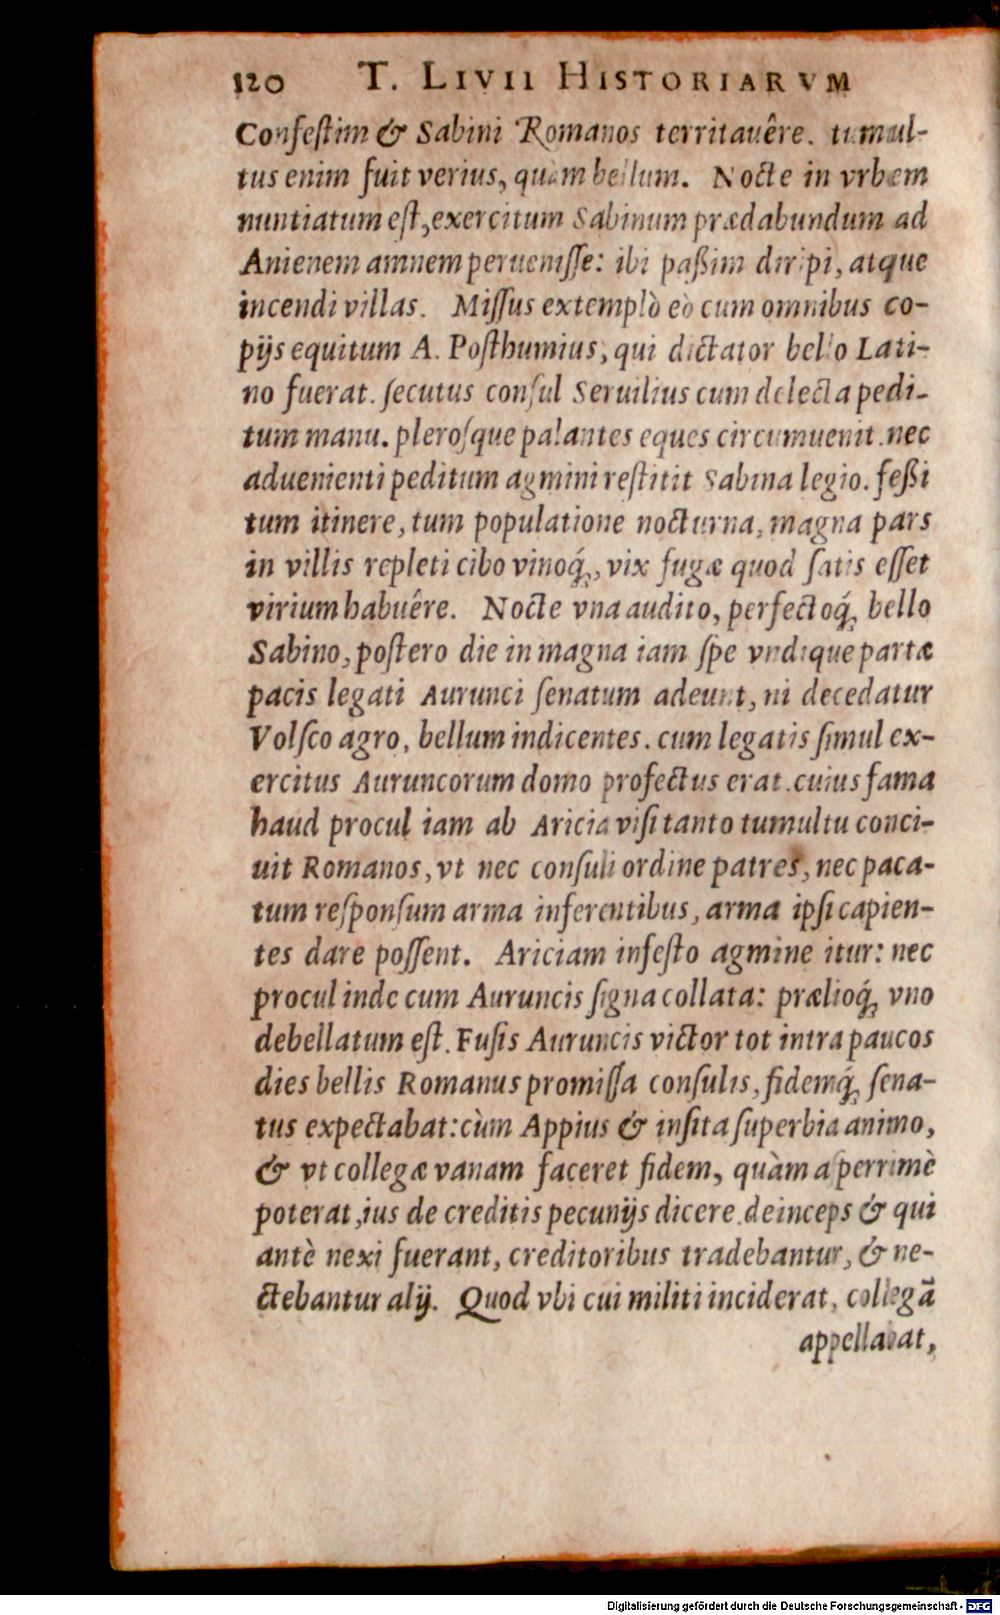 120 T. LIVII HISTORIARVM
Confestim & Sabini Romanos territauêre. tumul-
tus enim fuit verius, quàm bellum. Nocte in vrbem
nuntiatum est, exercitum Sabinum prædabundum ad
Anienem amnem peruenisse: ibi paßim diripi, atque
incendi villas. Missus extemplò eò cum omnibus co-
pijs equitum A. Posthumius, qui dictator bello Lati-
no fuerat. secutus consul Seruilius cum delecta pedi-
tum manu. plerosque palantes eques circumuenit. nec
aduenienti peditum agmini restitit Sabina legio. feßi
tum itinere, tum populatione nocturna, magna pars
in villis repleti cibo vinoq́;, vix fugæ quod satis esset
virium habuêre. Nocte vna audito, perfectoq́; bello
Sabino, postero die in magna iam spe vndique partæ
pacis legati Aurunci senatum adeunt, ni decedatur
Volsco agro, bellum indicentes. cum legatis simul ex-
ercitus Auruncorum domo profectus erat. cuius fama
haud procul iam ab Aricia visi tanto tumultu conci-
uit Romanos, vt nec consuli ordine patres, nec paca-
tum responsum arma inferentibus, arma ipsi capien-
tes dare possent. Ariciam infesto agmine itur: nec
procul inde cum Auruncis signa collata: prælioq́; vno
debellatum est. Fusis Auruncis victor tot intra paucos
dies bellis Romanus promissa consulis, fidemq́; sena-
tus expectabat: cùm Appius & insita superbia animo,
& vt collegæ vanam faceret fidem, quàm asperrimè
poterat, ius de creditis pecunijs dicere. deinceps & qui
antè nexi fuerant, creditoribus tradebantur, & ne-
ctebantur alij. Quod vbi cui militi inciderat, collegā
appellabat,
Digitalisierung gefördert durch die Deutsche Forschungsgemeinschaft - DFG